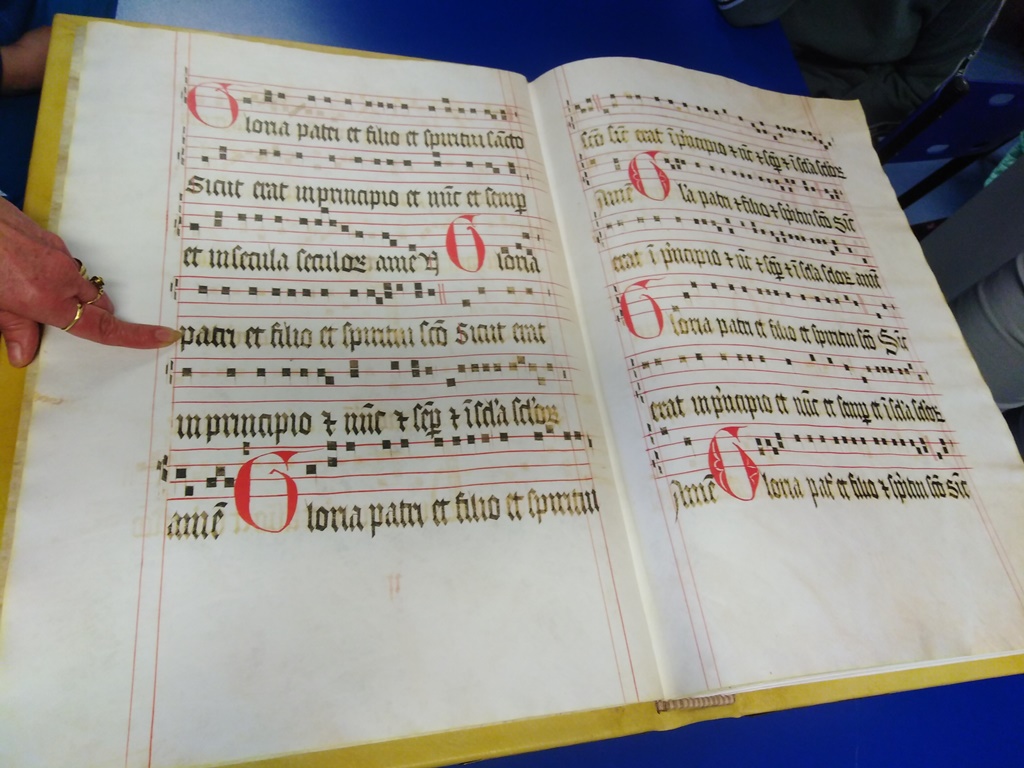 Gloria patri et filio et spiritui sācto
Sicut erat in principio et nūc et semp
et in secula seculoꝝ amē Gloria
patri et filio et spiritui scō Sicut erat
in principio ⁊ nūc ⁊ sēp ⁊ ī scl'a scl'oꝝ
amē Gloria patri et filio et spiritui
scō sic̄ erat ī pͥncipio ⁊ nūc ⁊ sēp ⁊ ī scl'a scl'oꝝ
Amē Gl'a patri ⁊ filio ⁊ spiritui scō Sic̄
erat ī pͥncipio ⁊ nūc ⁊ sēp ⁊ ī scl'a scl'oꝝ amē
Gloria patri et filio et spiritui scō Sic̄
erat in pͥncipio et nūc et semp et ī scl'a scl'oꝝ
Amē Gloria pat' et filio ⁊ spiritui scō sic̄